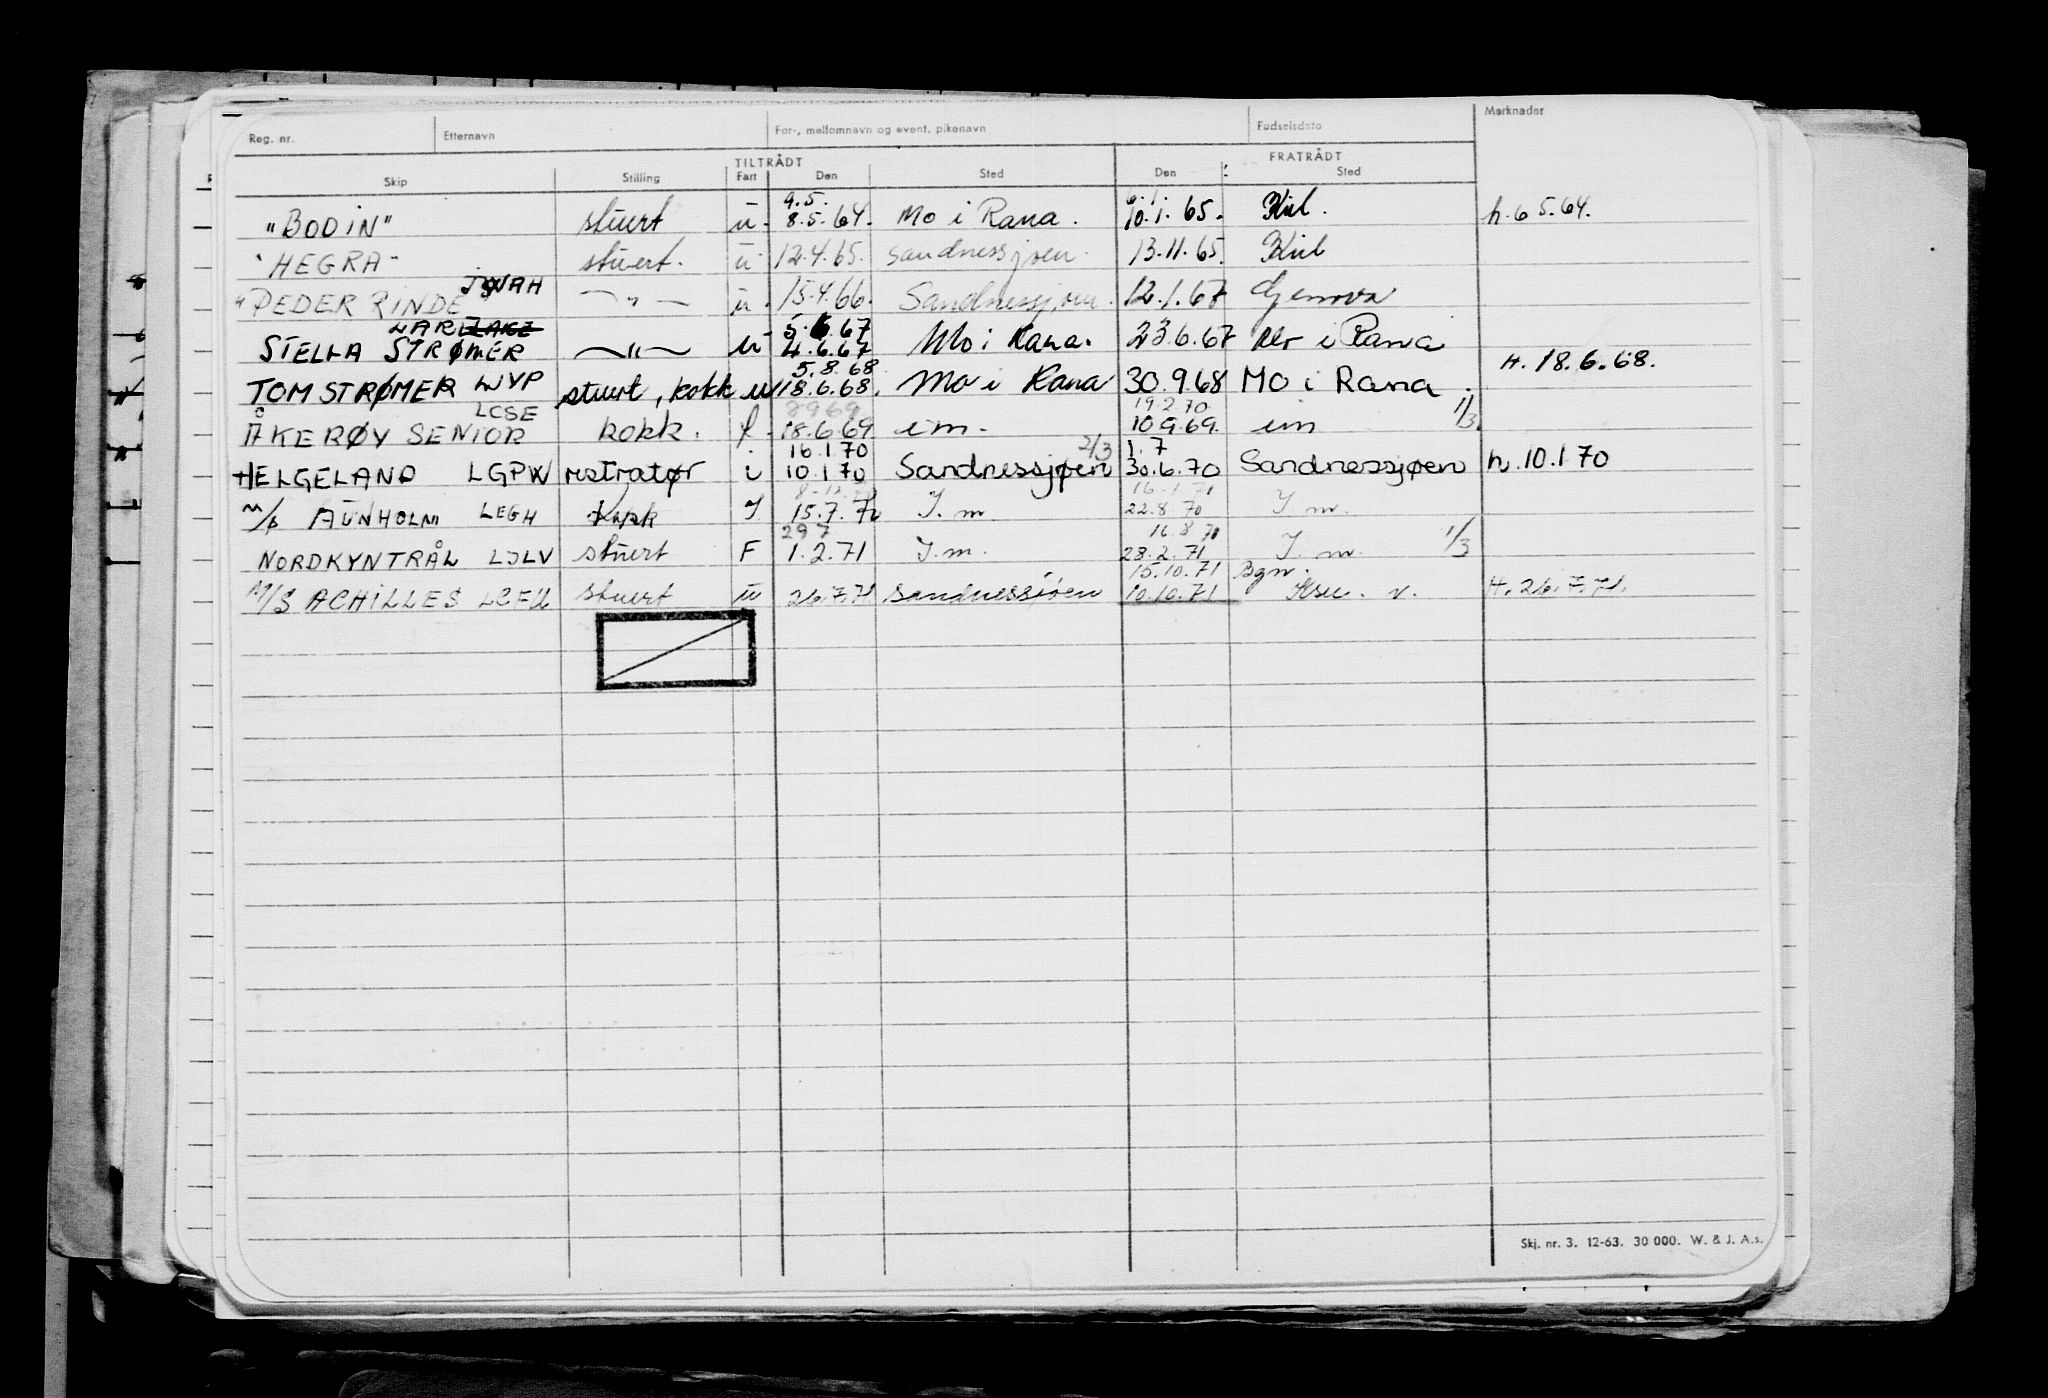 Reg. nr. Etternavn For-, mellomnavn og event. pikenavn Fødselsdato Merknader
TILTRÅDT FRATRÅDT
Skip Stilling Fart Den Sted Den Sted
9.5. 6.1.
"BODIN" stuert u. 8.5.64. Mo i Rana. 10.1.65. Kiel. h. 6 5.64.
"HEGRA" stuert. u 12.4.65. Sandnessjøen. 13.11.65. Kiel
"PEDER RINDE —"— u. 15.4.66. Sandnessjøen. 12.1.67 Genova
5.6.67
STELLA STRØMER —"— u 4.6.67 Mo i Rana. 23.6.67 Mo i Rana
5.8.68 H. 18.6.68.
TOM STRØMER LJYP stuert, kokk u 18.6.68. Mo i Rana 30.9.68 MO i Rana.
LCSE 8969 19.2.70. 1/3
ÅKERØY SENIOR kokk. f. 18.6.69. im. 10.9.69. im
16.1.70 2/3 1.7
HELGELAND LGPW restratør u 10.1.70 Sandnessjøen 30.6.70 Sandnessjøen h. 10.1.70
16.1.71
M/S AUNHOLM LEGH Kokk I 15.7.70 I.m. 22.8.70 I.m.
29 7 16.8 71
NORDKYNTRÅL LJLV stuert F 1.2.71 I.m. 28.2.71 I.m. 1/3
15.10.71 Bgn.
M/S ACHILLES stuert u 26.7.71 Sandnessjøen 10.10.71 H. 26.7.71.
Skj. nr. 3. 12-63. 30 000. W. & J. A.s.